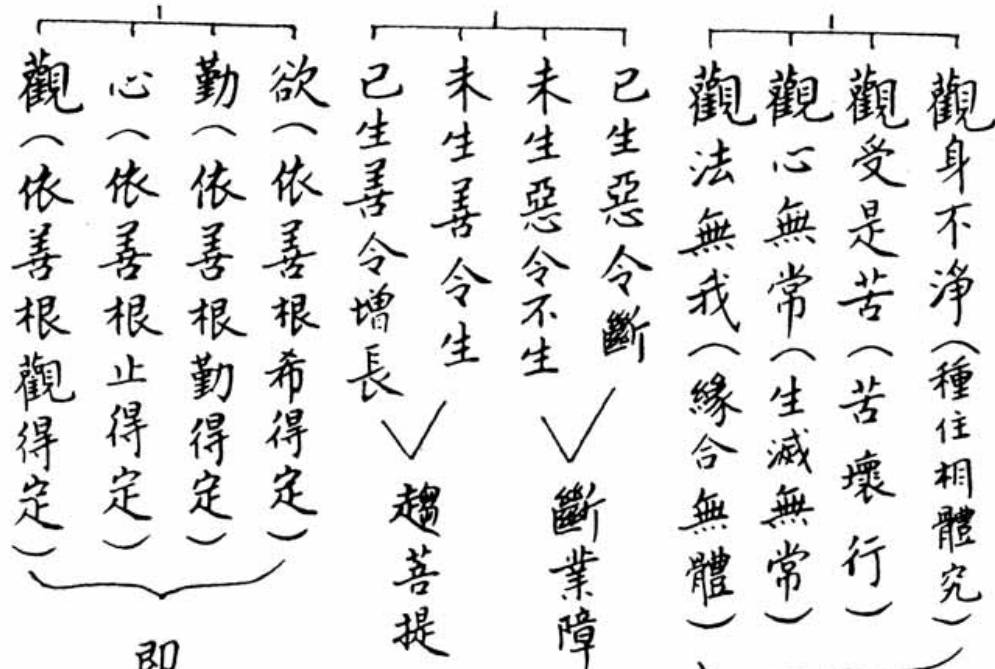 觀身不淨(種住相體究)
觀受是苦(苦壞行)
觀心無常(生滅無常)
觀法無我(緣合無體)
已生惡令斷
未生惡令不生
斷業障
未生善令生
已生善令增長
趨菩提
欲(依善根希得定)
勤(依善根勤得定)
心(依善根止得定)
觀(依善根觀得定)
即